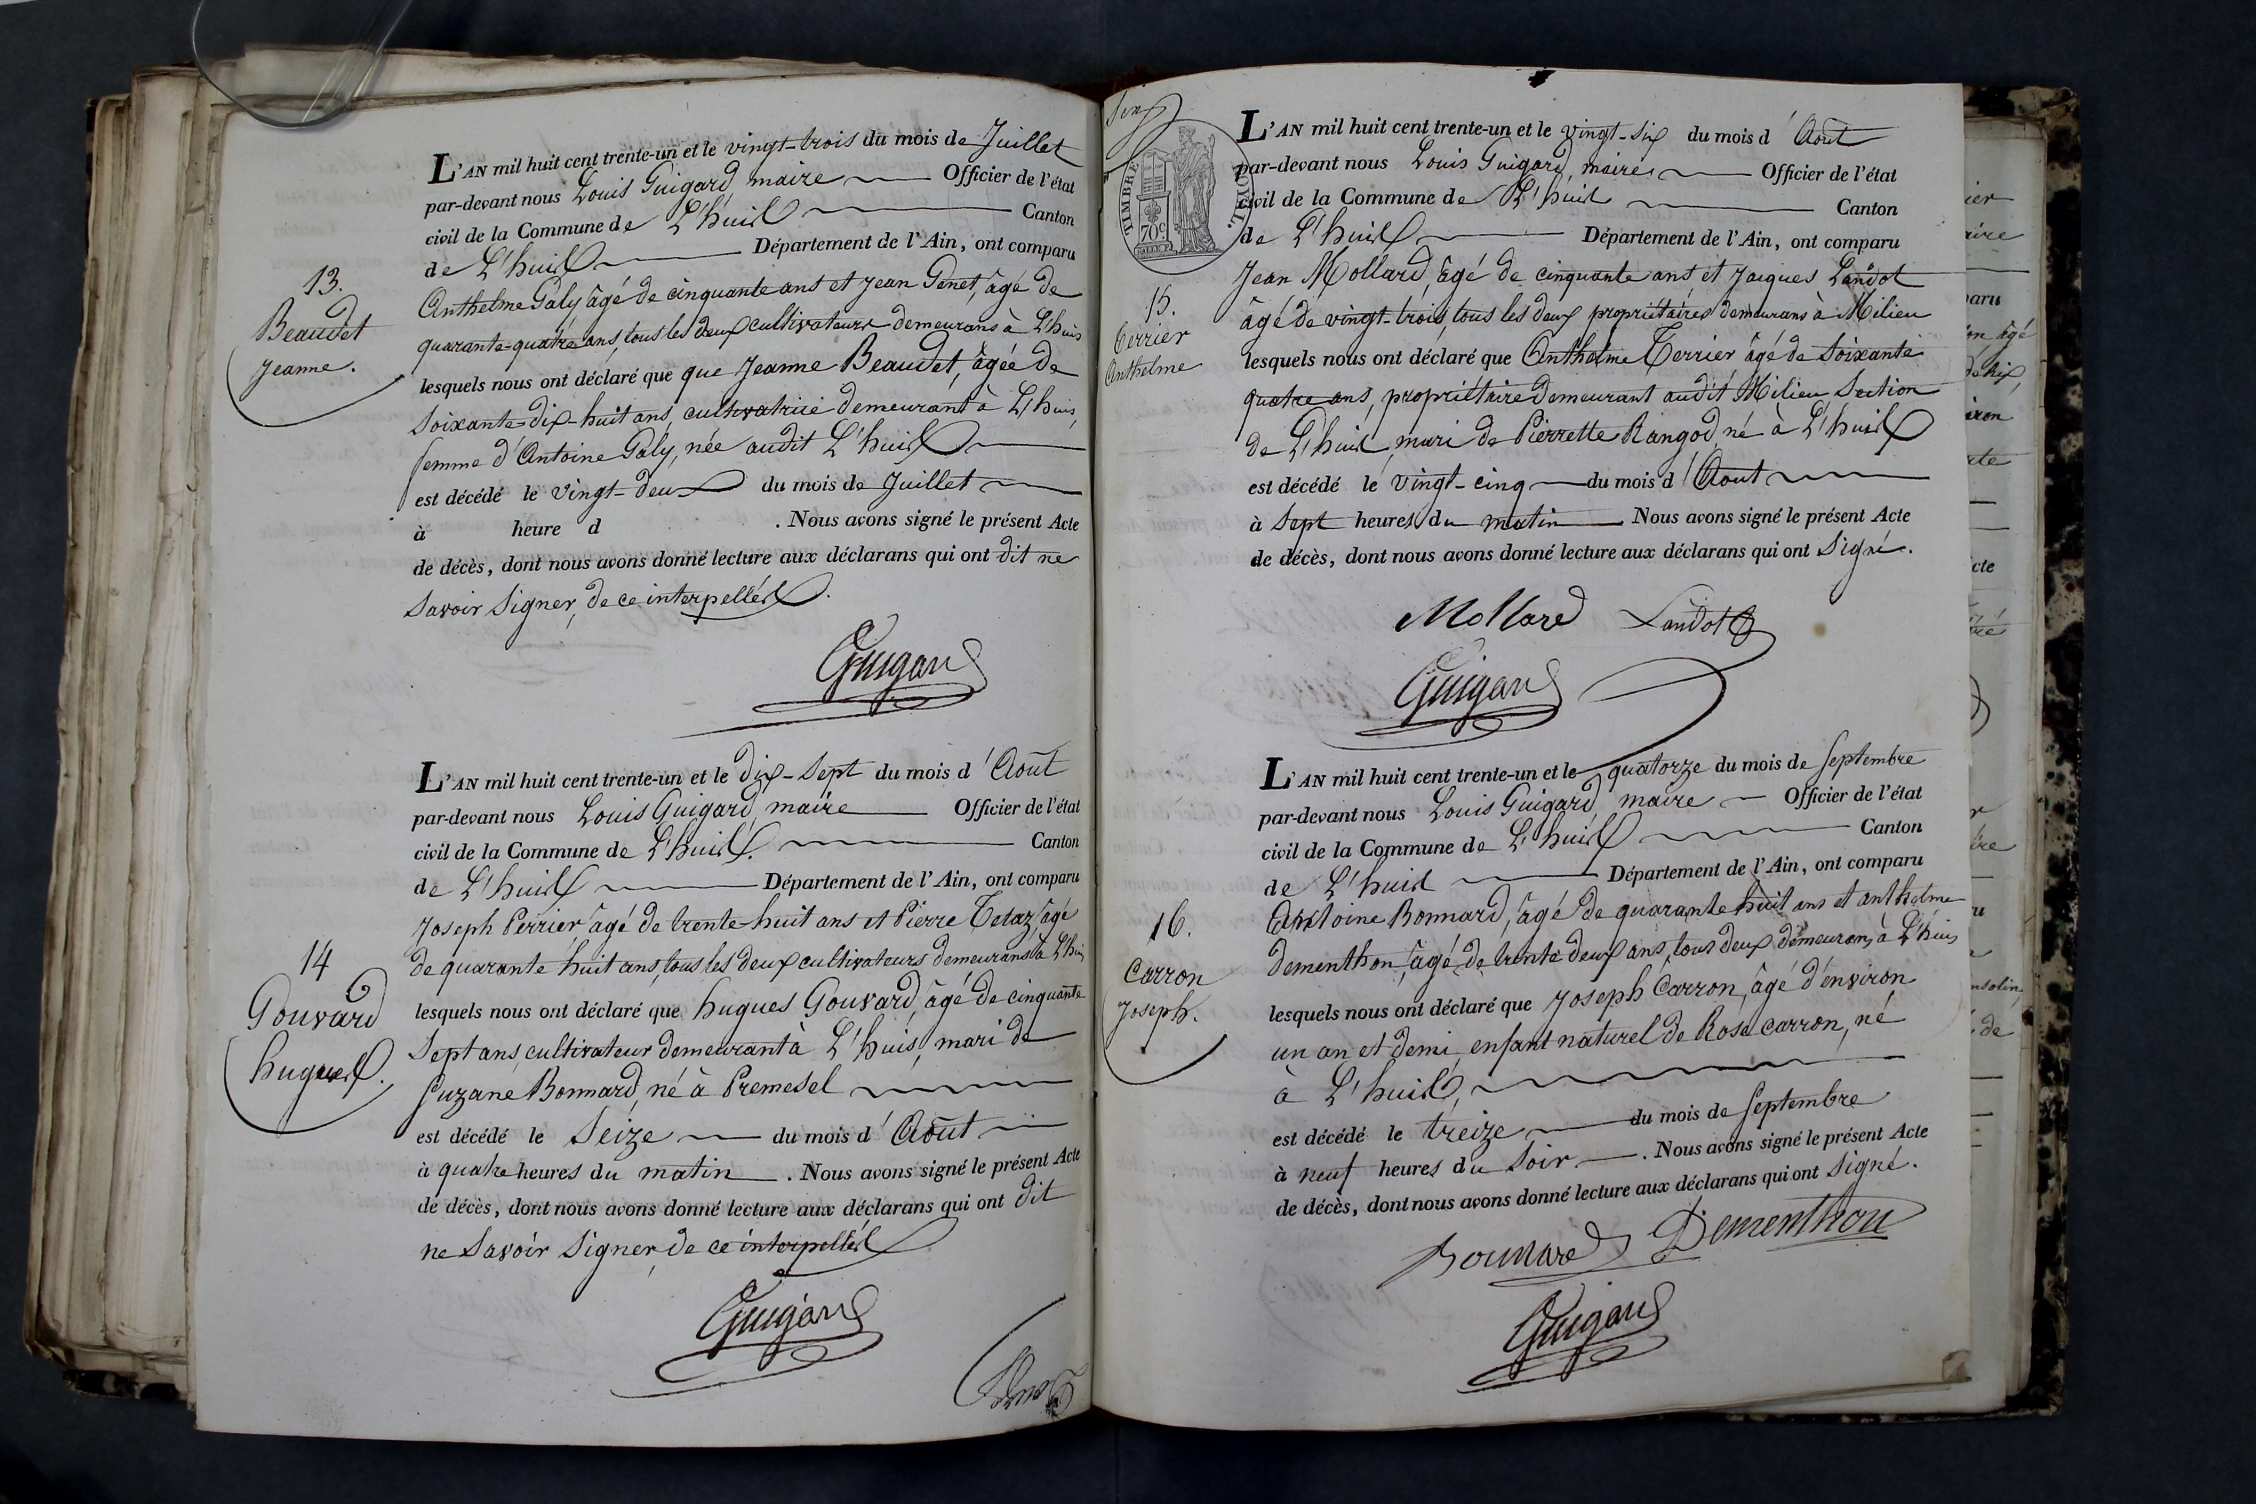 13.
Beaudet
Jeanne.
L'AN mil huit cent trente-un et le vingt-trois du mois de Juillet
par-devant nous Louis Guigard, maire Officier de l'état
civil de la Commune de L'huis Canton
de L'huis Département de l'Ain, ont comparu
Anthelme Galy âgé de cinquante ans et Jean Genet, âgé de
quarante-quatre ans, tous les deux cultivateurs demeurans à L'huis
lesquels nous ont déclaré que que Jeanne Beaudet, âgée de
soixante-dix-huit ans, cultivatrice demeurant à L'huis,
femme d'Antoine Galy, née audit L'huis
est décédé le vingt-deux du mois de Juillet
à heure d . Nous avons signé le présent Acte
de décès, dont nous avons donné lecture aux déclarans qui ont dit ne
savoir signer, de ce interpellés.
Guigard
14
Gouvard
hugues.
L'AN mil huit cent trente-un et le dix-sept du mois d'Aout
par-devant nous Louis Guigard, maire Officier de l'état
civil de la Commune de L'huis. Canton
de L'huis Département de l'Ain, ont comparu
Joseph Perrier âgé de trente huit ans et Pierre Tetaz âgé
de quarante huit ans, tous les deux cultivateurs demeurans à L'huis
lesquels nous ont déclaré que hugues Gouvard, âgé de cinquante
sept ans, cultivateur demeurant à L'huis, mari de
Suzane Bonnard, né à Premesel
est décédé le seize du mois d'Aout
à quatre heures du matin . Nous avons signé le présent Acte
de décès, dont nous avons donné lecture aux déclarans qui ont dit
ne savoir signer, de ce interpellés
Guigard
TIMBRE ROYAL.
70c
15.
Terrier
Anthelme
L'AN mil huit cent trente-un et le vingt-six du mois d'Aout
par-devant nous Louis Guigard, maire, Officier de l'état
civil de la Commune de L'huis Canton
de L'huis Département de l'Ain, ont comparu
Jean Mollard, âgé de cinquante ans et Jacques Landot
âgé de vingt-trois, tous les deux propriétaires demeurans à Milieu
lesquels nous ont déclaré que Anthelme Terrier âgé de soixante
quatre ans, propriétaire demeurant audit Milieu Section
de L'huis mari de Pierrette Rangod, né à L'huis
est décédé le vingt-cinq du mois d'Aout
à sept heures du matin Nous avons signé le présent Acte
de décès, dont nous avons donné lecture aux déclarans qui ont signé.
Mollard Landot
Guigard
16.
Carron
Joseph.
L'AN mil huit cent trente-un et le quatorze du mois de Septembre
par-devant nous Louis Guigard, maire Officier de l'état
civil de la Commune de L'huis Canton
de L'huis Département de l'Ain, ont comparu
Antoine Bonnard, âgé de quarante huit ans et anthelme
dementhon, âgé de trente deux ans, tous deux demeurans à L'huis
lesquels nous ont déclaré que Joseph Carron, âgé d'environ
un an et demi, enfant naturel de Rose carron, né
à L'huis,
est décédé le treize du mois de Septembre
à neuf heures du soir . Nous avons signé le présent Acte
de décès, dont nous avons donné lecture aux déclarans qui ont signé.
Bonnard Dementhon
Guigard